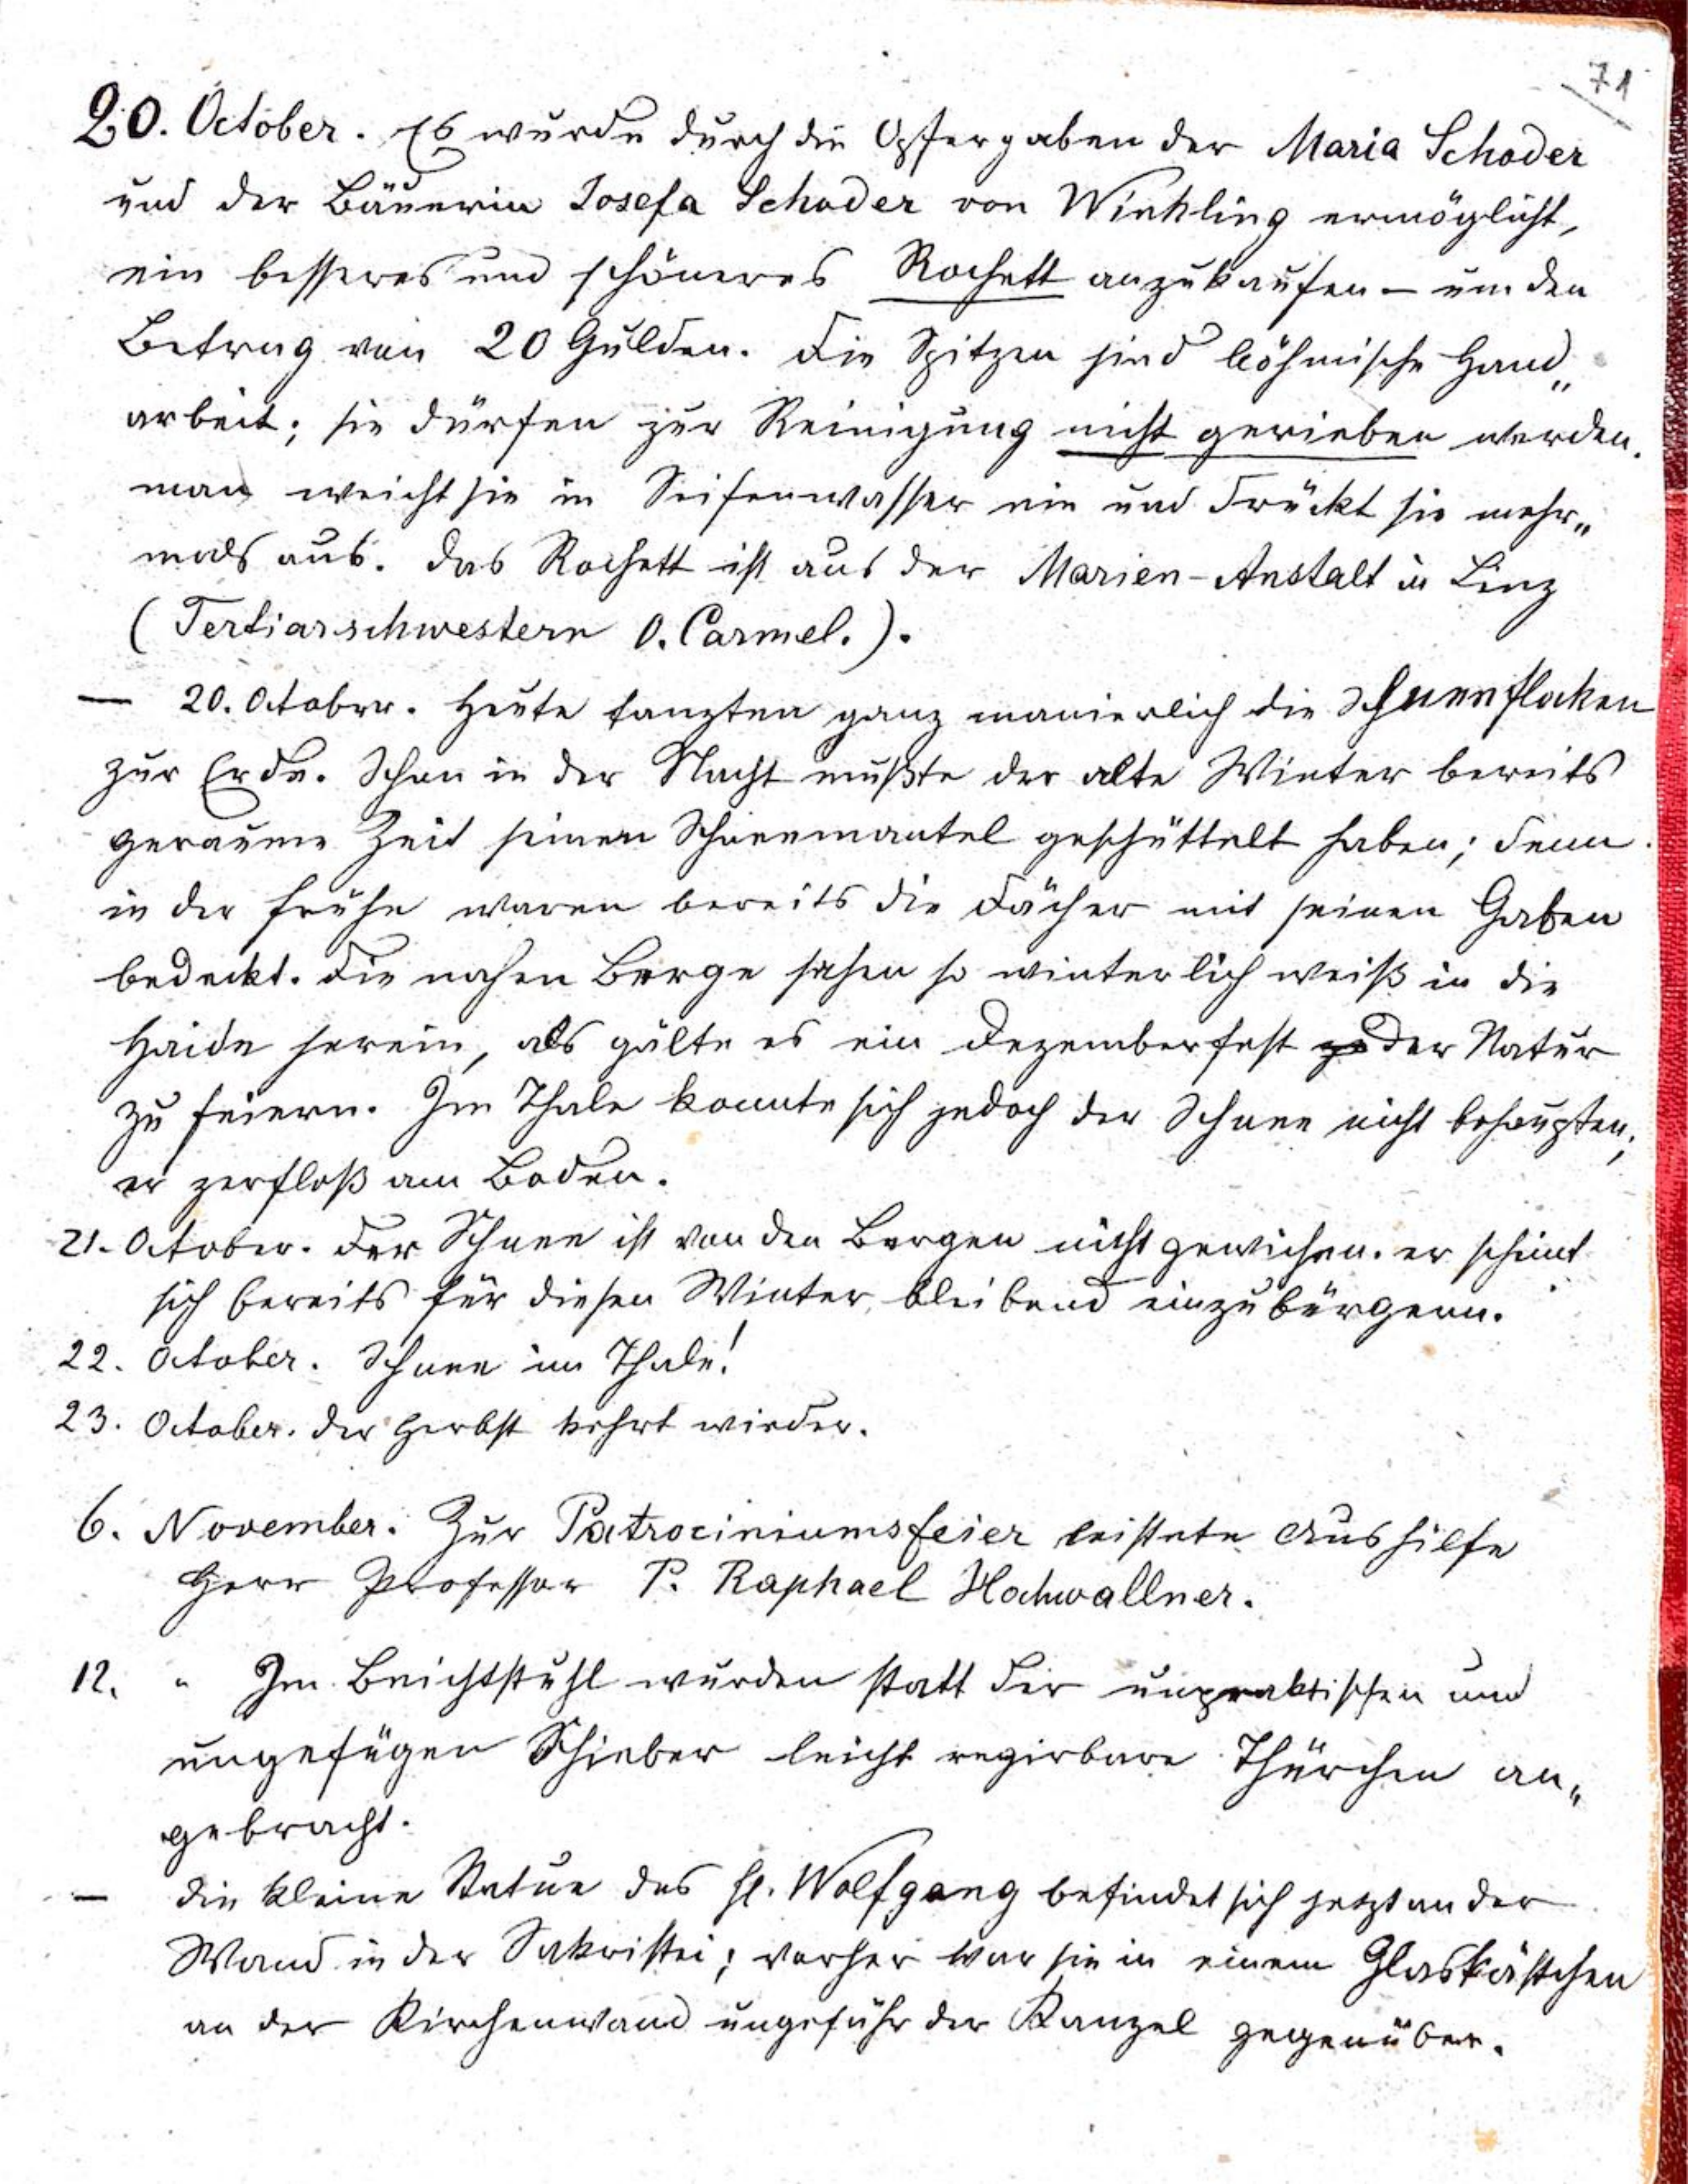 71
20. October. Es wurde durch die Opfergaben der Maria Schoder
und der Bäuerin Josefa Schoder von Winkling ermöglicht,
ein besseres und schöneres Rochett anzukaufen – um den
Betrag von 20 Gulden. Die Spitzen sind böhmische Hand„
arbeit; sie dürfen zur Reinigung nicht gerieben werden.
man weicht sie in Seifenwasser ein und drückt sie mehr„
mals aus. Das Rochett ist aus der Marien-Anstalt in Linz
(Tertiarschwestern O. Carmel.).
— 20. October. Heute tanzten ganz manierlich die Schneeflocken
zur Erde. Schon in der Nacht mußte der alte Winter bereits
geraume Zeit seinen Schneemantel geschüttelt haben; denn
in der Frühe waren bereits die Dächer mit seinen Gaben
bedeckt. Die nahen Berge sahen so winterlich weiß in die
Haide herein, als gälte es ein Dezemberfest der Natur
zu feiern. Im Thale konnte sich jedoch der Schnee nicht behaupten;
er zerfloß am Boden.
21. October. Der Schnee ist von den Bergen nicht gewichen. er scheint
sich bereits für diesen Winter bleibend einzubürgern.
22. October. Schnee im Thale!
23. October. Der Herbst kehrt wieder.
6. November. Zur Patrociniumsfeier leistete Aushilfe
Herr Professor P. Raphael Hochwallner.
12. " Im Beichtstuhl wurden statt der unpraktischen und
ungefügen Schieber leicht regirbare Thürchen an„
gebracht.
— Die kleine Statue des hl. Wolfgang befindet sich jetzt an der
Wand in der Sakristei; vorher war sie in einem Glaskästchen
an der Kirchenwand ungefähr der Kanzel gegenüber.